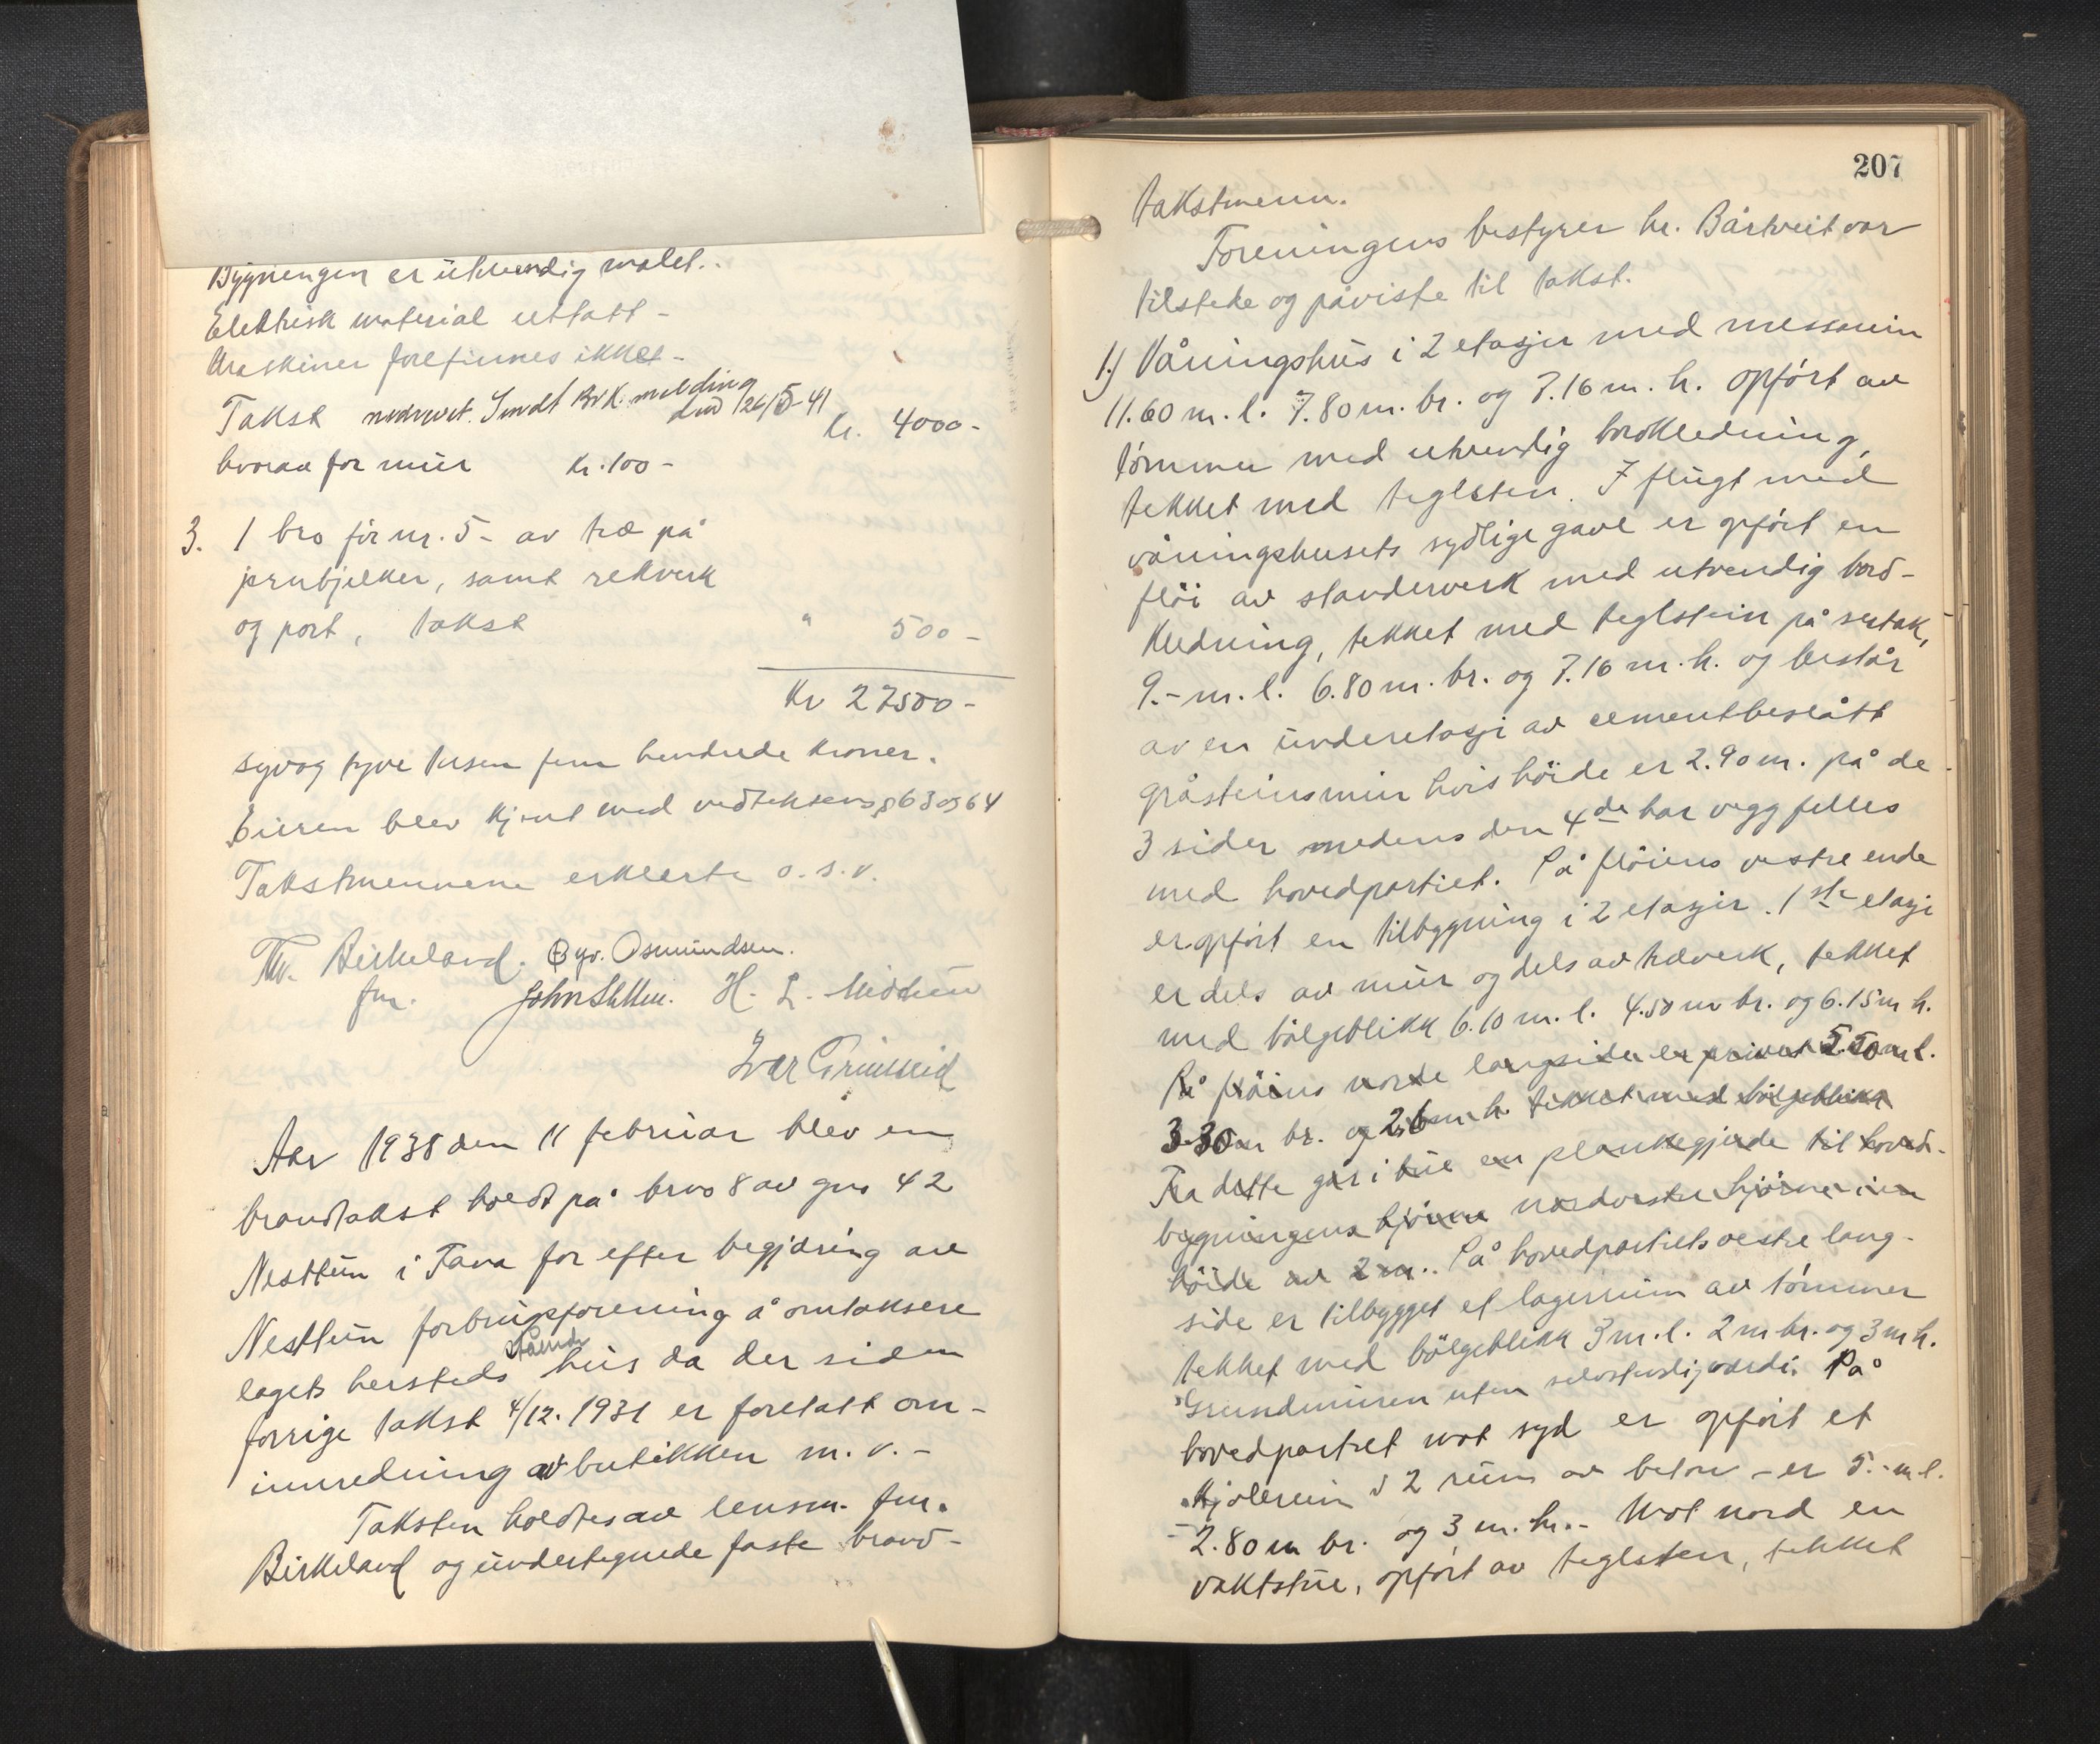 Bygningen er utvendig malet.
Elektrisk material uttatt -
Maskiner forefinnes ikke -
Takst nedrevet. Smdt BrK. melding
dat 26/5-41
kr. 4000-
hvorav for mur kr. 100-
3. 1 bro for nr. 5 - av træ på
jernbjelker, samt rekverk
og port, takst " 500-
Kr 27500-
syv og tyve tusen fem hundrede kroner.
Eieren blev kjent med vedtektens § 63 og 64
Takstmennene erklerte o.s.v.
Thv. Birkeland. Byv. Osmundsen.
fm. H. L. Midttun
Ivar Grimseid
Aar 1938 den 11 februar blev en
brandtakst holdt på brno 8 av gno 42
Nesttun i Fana for efter begjæring av
Nesttun forbruksforening å omtaksere
lagets hersteds stående hus da der siden
forrige takst 4/12. 1931 er foretatt om-
innredning av butikken m.v. -
Taksten holdtes av lensm. fm.
Birkeland og undertegnede faste brand-
207
takstmenn.
Foreningens bestyrer hr. Bårtveit var
tilstede og påviste til takst.
1.) Våningshus i 2 etasjer med messanin
11.60 m. l. 7.80 m. br. og 7.16 m. h. opført av
tømmer med utvendig bordkledning,
tekket med teglsten. I flugt med
våningshusets sydlige gavl er opført en
fløi av standerverk med utvendig bord-
kledning, tekket med teglstein på sutak,
9.- m. l. 6.80 m. br. og 7.16 m. h. og består
av en underetasje av cementbeslått
gråsteinsmur hvis høide er 2.90 m. på de
3 sider medens den 4de har vegg felles
med hovedpartiet. På fløiens vestre ende
er opført en tilbygning i 2 etasjer. 1ste etasje
er dels av mur og dels av træverk, tekket
med bølgeblikk 6.10 m. l. 4.50 m br. og 6.15 m h.
På fløiens nordre langside er privet 5.50 m l.
3.30 m br. og 2.6 m h. tekket med bølgeblikk
Fra dette går i bue en plankegjerde til hoved-
bygningens hjørne nordvestre hjørne i en
høide av 2 m. På hovedpartiets vestre lang-
side er tilbygget et lagerrum av tømmer
tekket med bølgeblikk 3 m. l. 2 m br. og 3 m h.
Grundmuren uten selvstendig værdi. På
hovedpartiet mot syd er opført et
kjølerum i 2 rum av beton - er 5.- m. l.
2.80 m br. og 3 m. h. - Mot nord en
vaktstue, opført av teglsten, tekket